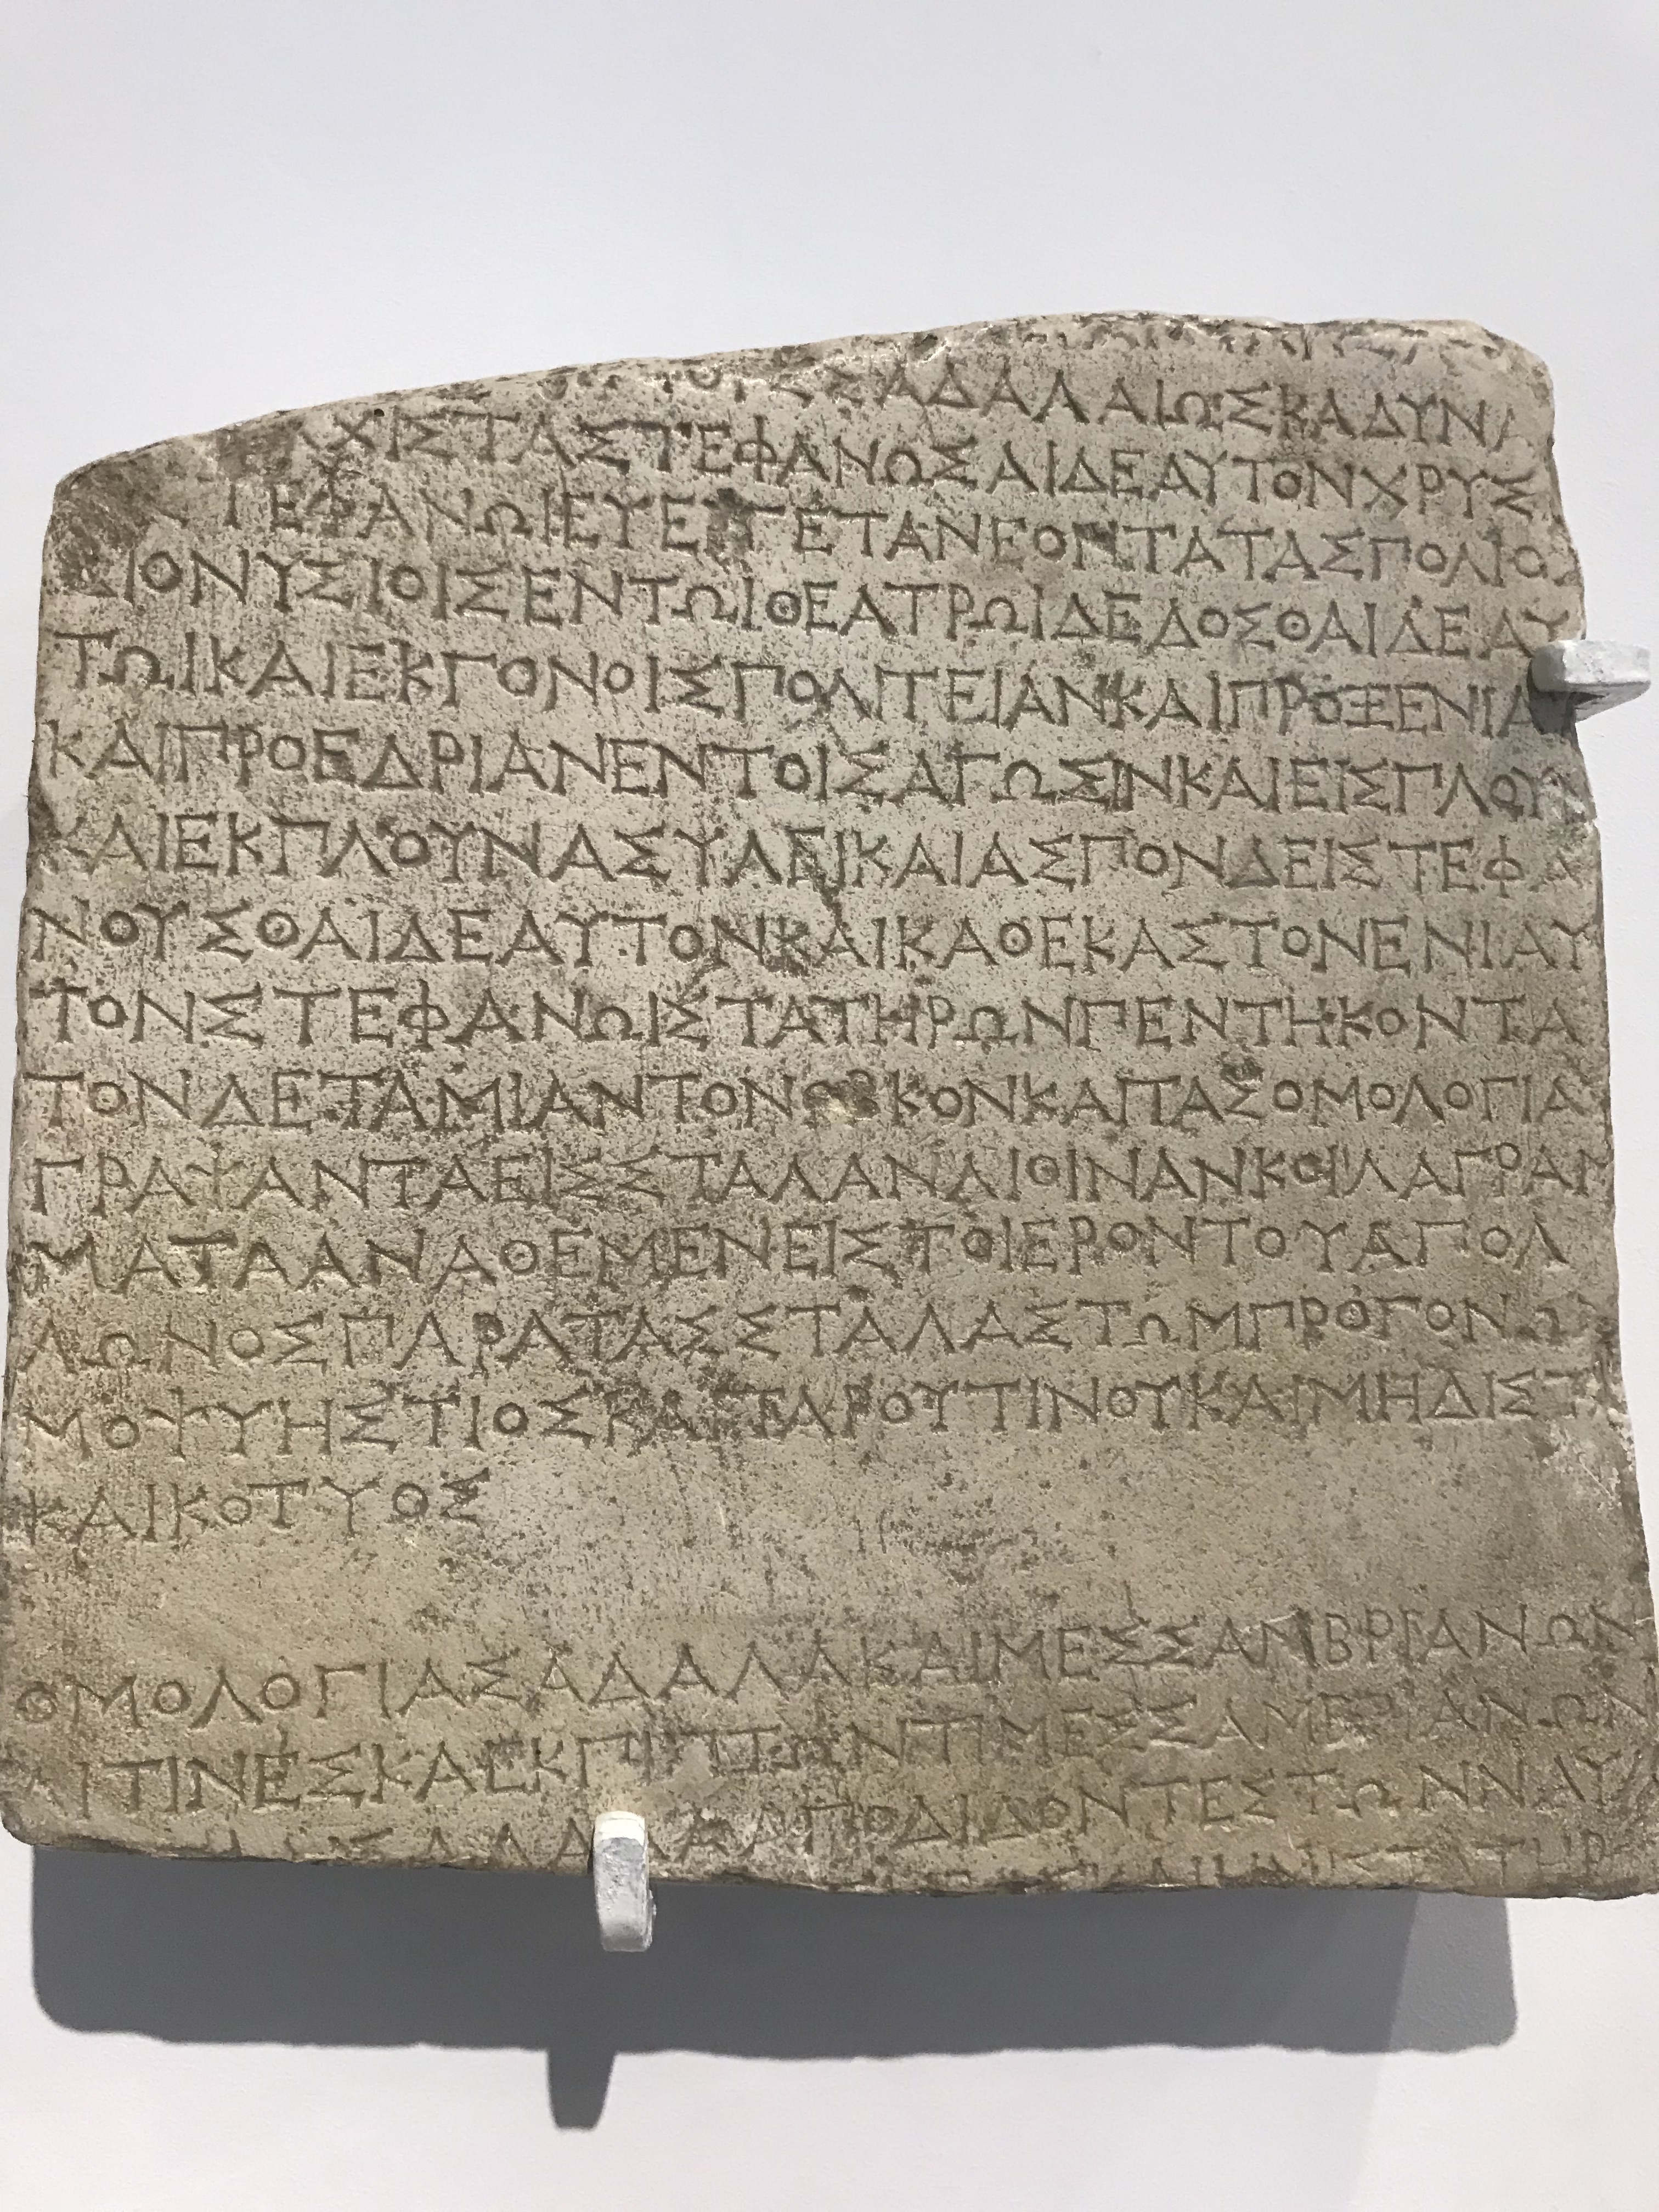 ΣΑΔΑΛΑΙ ΩΣ ΚΑ ΔΥΝΑ
ΑΧΙΣΤΑ ΣΤΕΦΑΝΩΣΑΙ ΔΕ ΑΥΤΟΝ ΧΡΥΣ
ΤΕΦΑΝΩΙ ΕΥΕΡΓΕΤΑΝ ΕΟΝΤΑ ΤΑΣ ΠΟΛΙΟ
ΔΙΟΝΥΣΙΟΙΣ ΕΝ ΤΩΙ ΘΕΑΤΡΩΙ ΔΕΔΟΣΘΑΙ ΔΕ ΑΥ
ΤΩΙ ΚΑΙ ΕΚΓΟΝΟΙΣ ΠΟΛΙΤΕΙΑΝ ΚΑΙ ΠΡΟΞΕΝΙΑ
ΚΑΙ ΠΡΟΕΔΡΙΑΝ ΕΝ ΤΟΙΣ ΑΓΩΣΙΝ ΚΑΙ ΕΙΣΠΛΟΥΝ
ΚΑΙ ΕΚΠΛΟΥΝ ΑΣΥΛΕΙ ΚΑΙ ΑΣΠΟΝΔΕΙ ΣΤΕΦΑ
ΝΟΥΣΘΑΙ ΔΕ ΑΥΤΟΝ ΚΑΙ ΚΑΘ ΕΚΑΣΤΟΝ ΕΝΙΑΥ
ΤΟΝ ΣΤΕΦΑΝΩΙ ΣΤΑΤΗΡΩΝ ΠΕΝΤΗΚΟΝΤΑ
ΤΟΝ ΔΕ ΤΑΜΙΑΝ ΤΟΝ ΟΡΚΟΝ ΚΑΙ ΤΑΣ ΟΜΟΛΟΓΙΑ
ΓΡΑΨΑΝΤΑ ΕΙΣ ΣΤΑΛΑΝ ΛΙΘΙΝΑΝ ΚΟΙΛΑ ΓΡΑΜ
ΜΑΤΑ ΑΝΑΘΕΜΕΝ ΕΙΣ ΤΟ ΙΕΡΟΝ ΤΟΥ ΑΠΟΛ
ΛΩΝΟΣ ΠΑΡΑ ΤΑΣ ΣΤΑΛΑΣ ΤΩΜ ΠΡΟΓΟΝΩ
ΜΟΨΥΗΣΤΙΟΣ ΚΑΙ ΤΑΡΟΥΤΙΝΟΥ ΚΑΙ ΜΗΔΙΣΤ
ΚΑΙ ΚΟΤΥΟΣ
ΟΜΟΛΟΓΙΑ ΣΑΔΑΛΑ ΚΑΙ ΜΕΣΣΑΜΒΡΙΑΝΩΝ
ΑΙ ΤΙΝΕΣ ΚΑ ΕΚΠΙΠΤΩΝΤΙ ΜΕΣΣΑΜΒΡΙΑΝΩΝ
ΣΑΔΑΛΑ ΑΠΟΔΙΔΟΝΤΕΣ ΤΩΝ ΝΑΥ